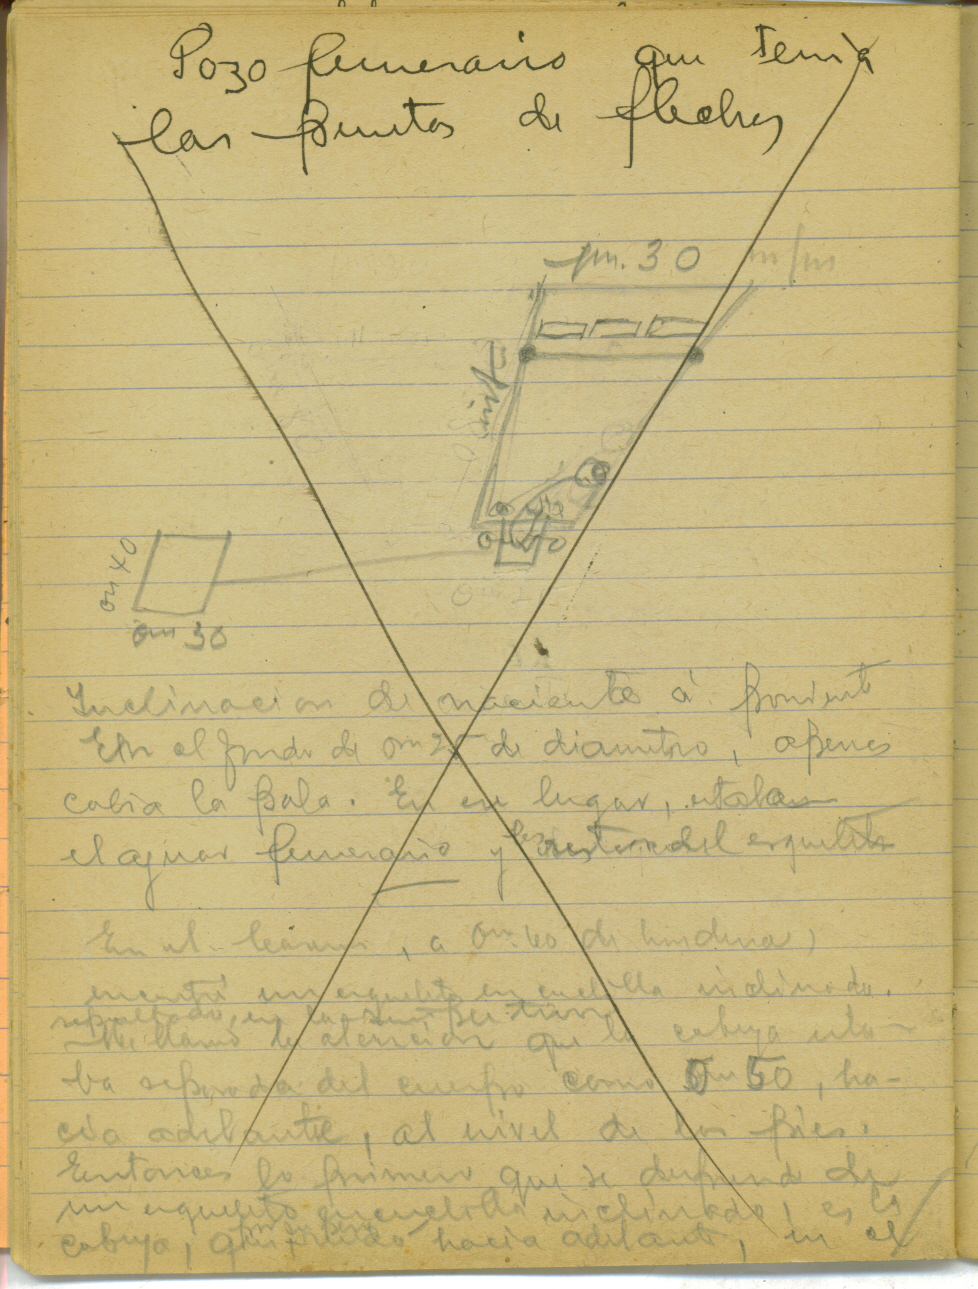 Pozo funerario que tenia
las puntas de flechas
1m.30
0m 40
0m 30
Inclinacion de naciente á poniente
En el fondo de 0m 25 de diametro, apenas
cabia la pala. En ese lugar, estaban
el ajuar funerario y los restos del esqueleto
En el, a 0m.60 de hondura,
encontré un esqueleto en cuclilla inclinado.
sepultado, en la
Me llamó la atención que la cabeza esta-
ba separada del cuerpo como 0m 50, ha-
cia adelante, al nivel de los pies.
Entonces lo primero que se desprende de
un esqueleto en cuclilla inclinado, es la
cabeza, que hacia adelante, en el